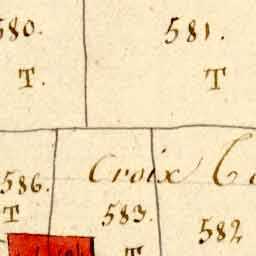 580. 581.
T. T
Croix
586.
T 583. 582
T